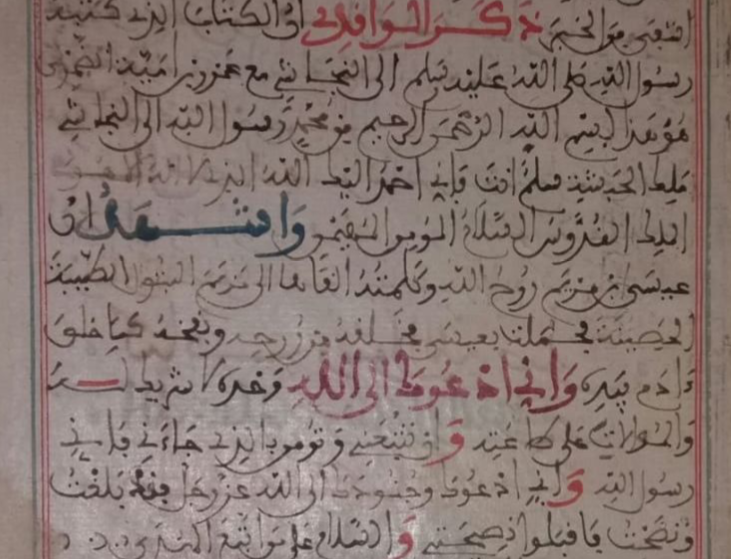 ذكر الواقدي ان الكتاب الذي كتبه
رسول الله صلى الله عليه وسلم الى النجاشي مع عمرو بن امية الضمري
هو هذا بسم الله الرحمن الرحيم من محمد رسول الله الى النجاشي
ملك الحبشة سلم انت فاني احمد اليك الله الذي لا اله الا هو
الملك القدوس السلام المومن المهيمن واشهد ان
عيسى بن مريم روح الله وكلمته القاها الى مريم البتول الطيبة
الحصينة فحملت بعيسى فخلقه من روحه ونفخه كما خلق
ءادم بيده واني ادعوك الى الله وحده لا شريك له
والموالات على طاعته وان تتبعني وتومن بالذي جاءني فاني
رسول الله واني ادعوك وجنودك الى الله عز وجل فقد بلغت
ونصحت فاقبلوا نصيحتي والسلام على من اتبع الهدى